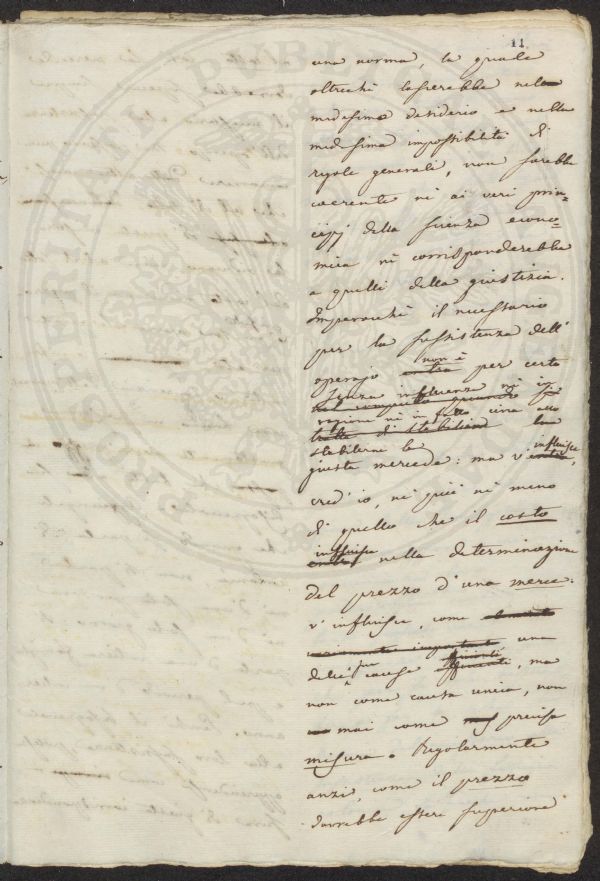 11
una norma, la quale
oltrecchè lascierebbe nello
medesimo desiderio e nella
medesima impossibilità di
regole generali, non sarebbe
coerente nè ai veri prin=
cipj della scienza econo=
mica nè corrisponderebbe
a quelli della giustizia.
Imperocchè il necessario
per la sussistenza dell'
operajo non è per certo
senza influenza nè in
ragione nè in fatto circa allo
stabilirne la
giusta mercede: ma v'influisce,
cred'io, nè più nè meno
di quello che il costo
influisce nella determinazione
del prezzo d'una merce:
v'influisce, come
una
delle più cause efficienti, ma
non come causa unica, non
mai come precisa
misura. Regolarmente
anzi, come il prezzo
dovrebbe essere superiore